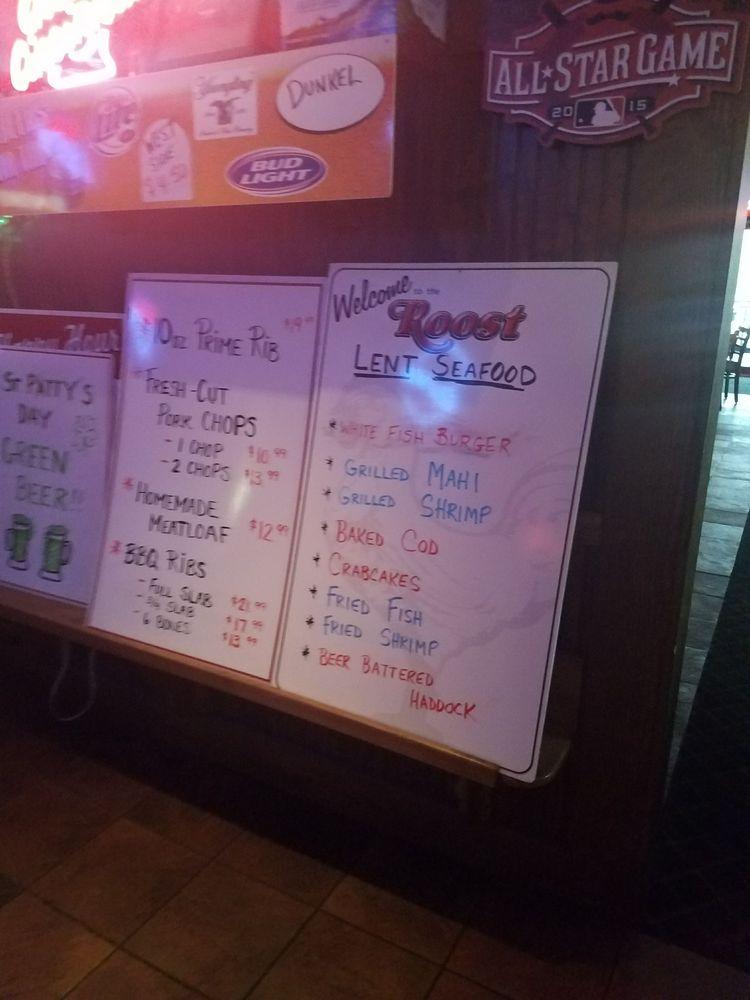 Miller
Lite
WEST
SIDE
$4.50
Yuengling
DUNKEL
BUD
LIGHT
ALL★STAR GAME
20 15
Hour
ST PATTY'S
DAY
GREEN
BEER!!
* 10oz PRIME RIB $19.99
* FRESH-CUT
PORK CHOPS
- 1 CHOP $10.99
- 2 CHOPS $13.99
* HOMEMADE
MEATLOAF $12.99
* BBQ RIBS
- FULL SLAB $21.99
- 3/4 SLAB $17.99
- 6 BONES $13.99
Welcome to the
Roost
LENT SEAFOOD
* WHITE FISH BURGER
* GRILLED MAHI
* GRILLED SHRIMP
* BAKED COD
* CRABCAKES
* FRIED FISH
* FRIED SHRIMP
* BEER BATTERED
HADDOCK